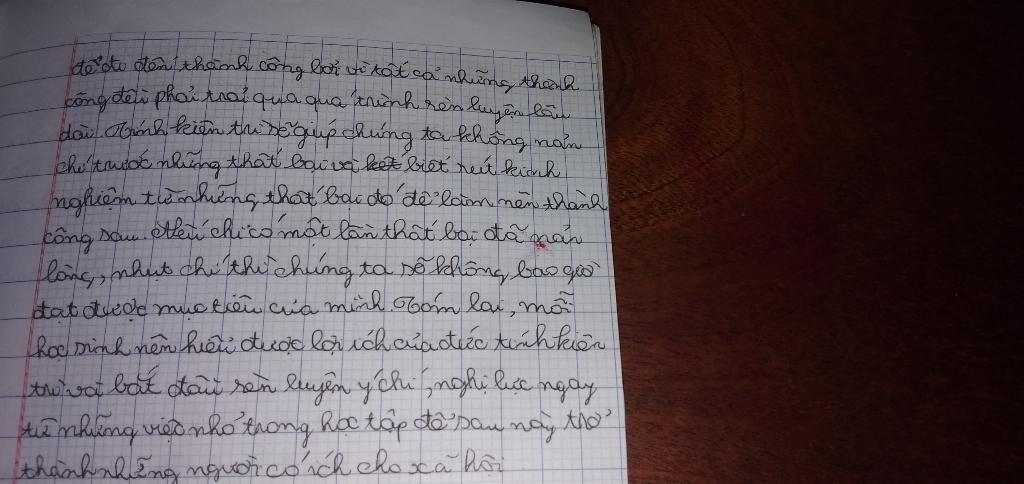 để đi đến thành công bởi vì tất cả những thành
công đều phải trải qua quá trình rèn luyện lâu
dài. Tính kiên trì sẽ giúp chúng ta không nản
chí trước những thất bại và biết rút kinh
nghiệm từ những thất bại đó để làm nên thành
công sau. Nếu chỉ có một lần thất bại đã nản
lòng, nhụt chí thì chúng ta sẽ không bao giờ
đạt được mục tiêu của mình. Tóm lại, mỗi
học sinh nên hiểu được lợi ích của đức tính kiên
trì và bắt đầu rèn luyện ý chí, nghị lực ngay
từ những việc nhỏ trong học tập để sau này trở
thành những người có ích cho xã hội